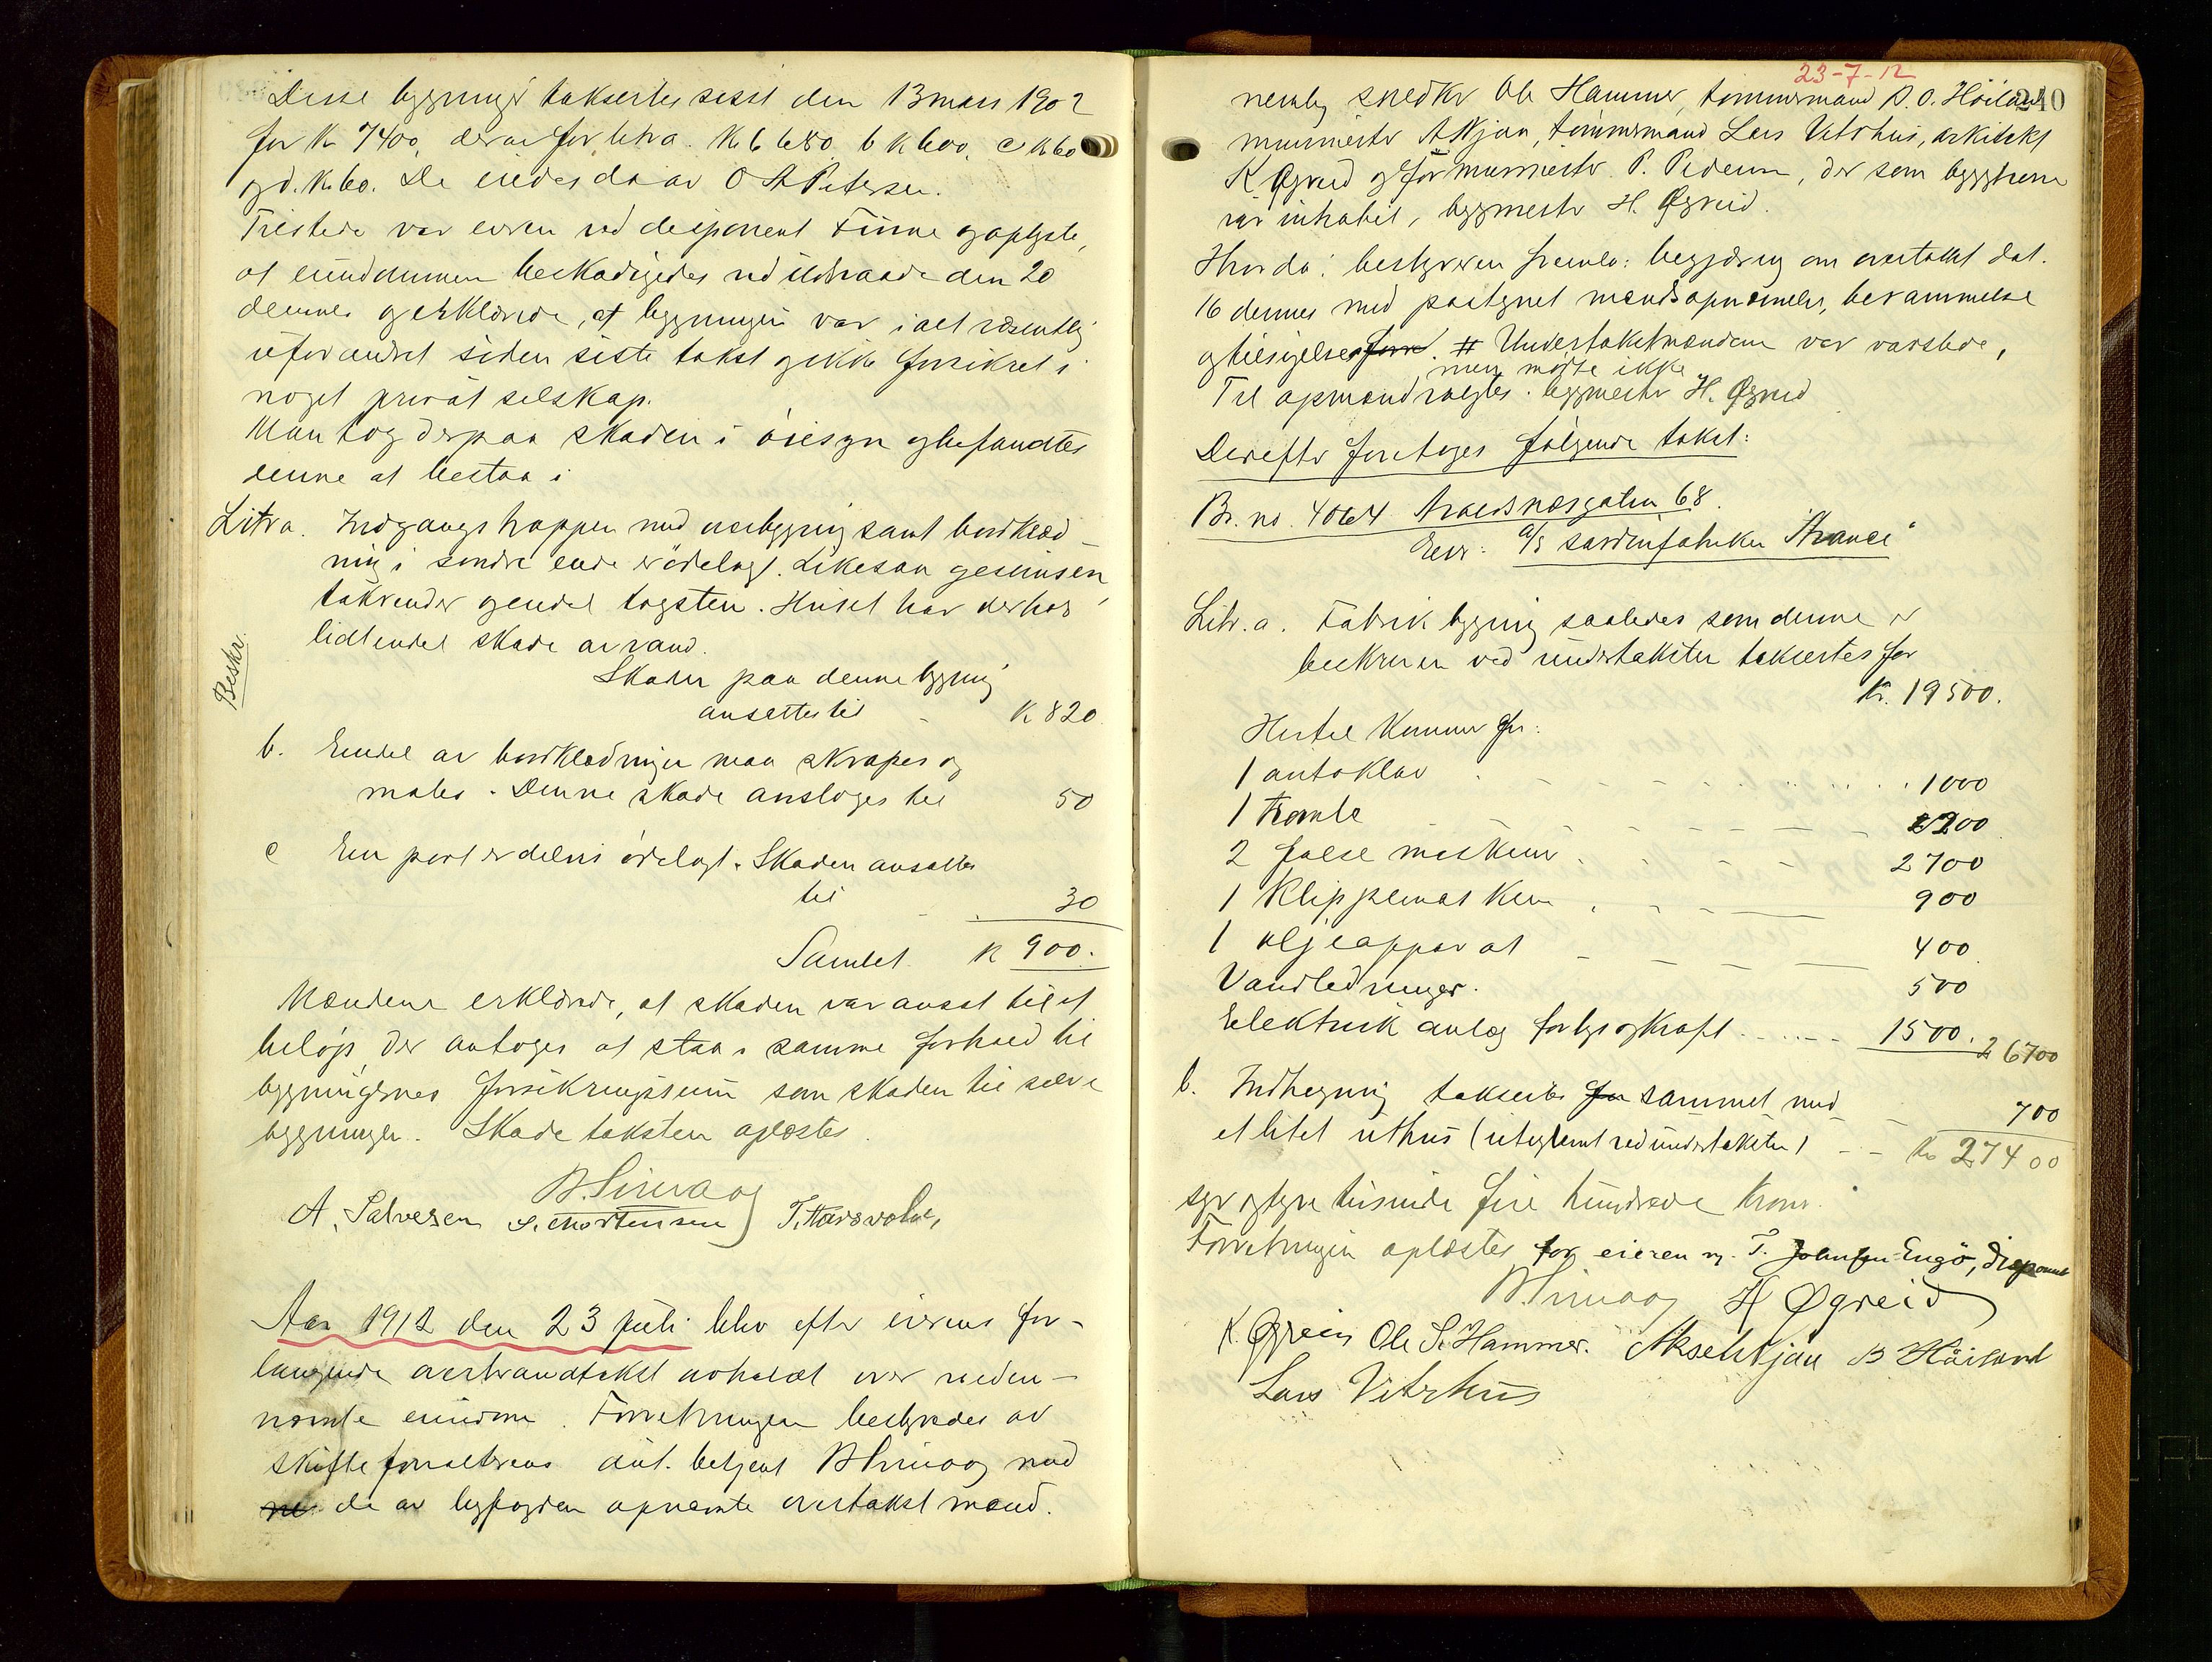 Disse bygninger taksertes sisst den 13 mars 1902
for Kr 7400, derav for litra. Kr 6 680. b K 600, c Kr 60
og d. Kr. 60. De eiedes da av O A Petersen.
Tilstede var eieren ved disponent Finne og oplyste,
at eiendommen beskadigedes ved ildsvaade den 20
dennes og erklærede, at bygningen var i alt væsentlig
uforandret siden siste takst og ikke forsikret i
noget privat selskap.
Man tog derpaa skaden i öiesyn og befandtes
denne at bestaa i
Litr a. Indgangstrappen med overbygning samt bordklæd-
ning i söndre ende er ödelagt. Likesaa gesimsen,
takrender og endel tagsten. Huset har derhos
lidt endel skade av vand.
Beskr.
Skaden paa denne bygning
ansættes til - K 820
b. Endel av bordklædningen maa skrapes og
males. Denne skade ansloges til 50
c En port er delvis ödelagt. Skaden ansattes
til 30
Samlet K 900.
Mændene erklærede, at skaden var ansat til et
belöp, der antoges at staa i samme forhold til
bygningernes forsikringssum som skaden til selve
bygningen. Skadetaksten oplæstes.
A. Salvesen S. Mortensen
Aar 1912 den 23 juli blev efter eierens for-
langende overbrandtakst avholdt over neden-
nævnte eiendom. Forretningen bestyredes av
skifteforvalterens aut. betjent med
ne de av byfogden opnævnte overtakstmænd.
23-7-12
240
nemlig snedker Ole Hammer, tömmermand B. O. Höiland
murmester A Njaa, tömmermand Lars Vetrhus, arkitekt
K Øgreid og for murmester P. Pedersen, der som bygherre
var inhabil, bygmester H. Øgreid.
Hvorda: bestyreren fremla: begjæring om overtakst dat.
16 dennes med paategnet mandsopnævnelse, berammelse
og tilsigelse. Undertakstmændene var varslede,
men mötte ikke
Til opmand valgtes bygmester H. Øgreid
Derefter foretoges fölgende takst:
Br. no. 4064 Strandsnæsgaten 68.
Eier: a/s sardinfabriken
Litr. a. Fabrik bygning saaledes som denne er
beskreven ved undertaksten taksertes for
Kr. 19500.
Hertil kommer for:
1 autoklav 1000
1 tromle 200
2 false maskiner 2700
1 klippemaskin 900
1 oljeapparat 400
Vandledninger. 500
Elektrisk anlæg for lys og kraft 1500. 26700
b. Indhegning takseres for sammet med
700
et litet uthus (uteglemt ved undertaksten) - - Kr 27400
syv og tyve tusinde fire hundrede kroner.
Forretningen oplæstes for eieren v. T. Johnsen Engö, disponent
H Øgreid
K. Øgreid Ole S. Hammer. Aksel Njaa B Höiland
Lars Vetrhus